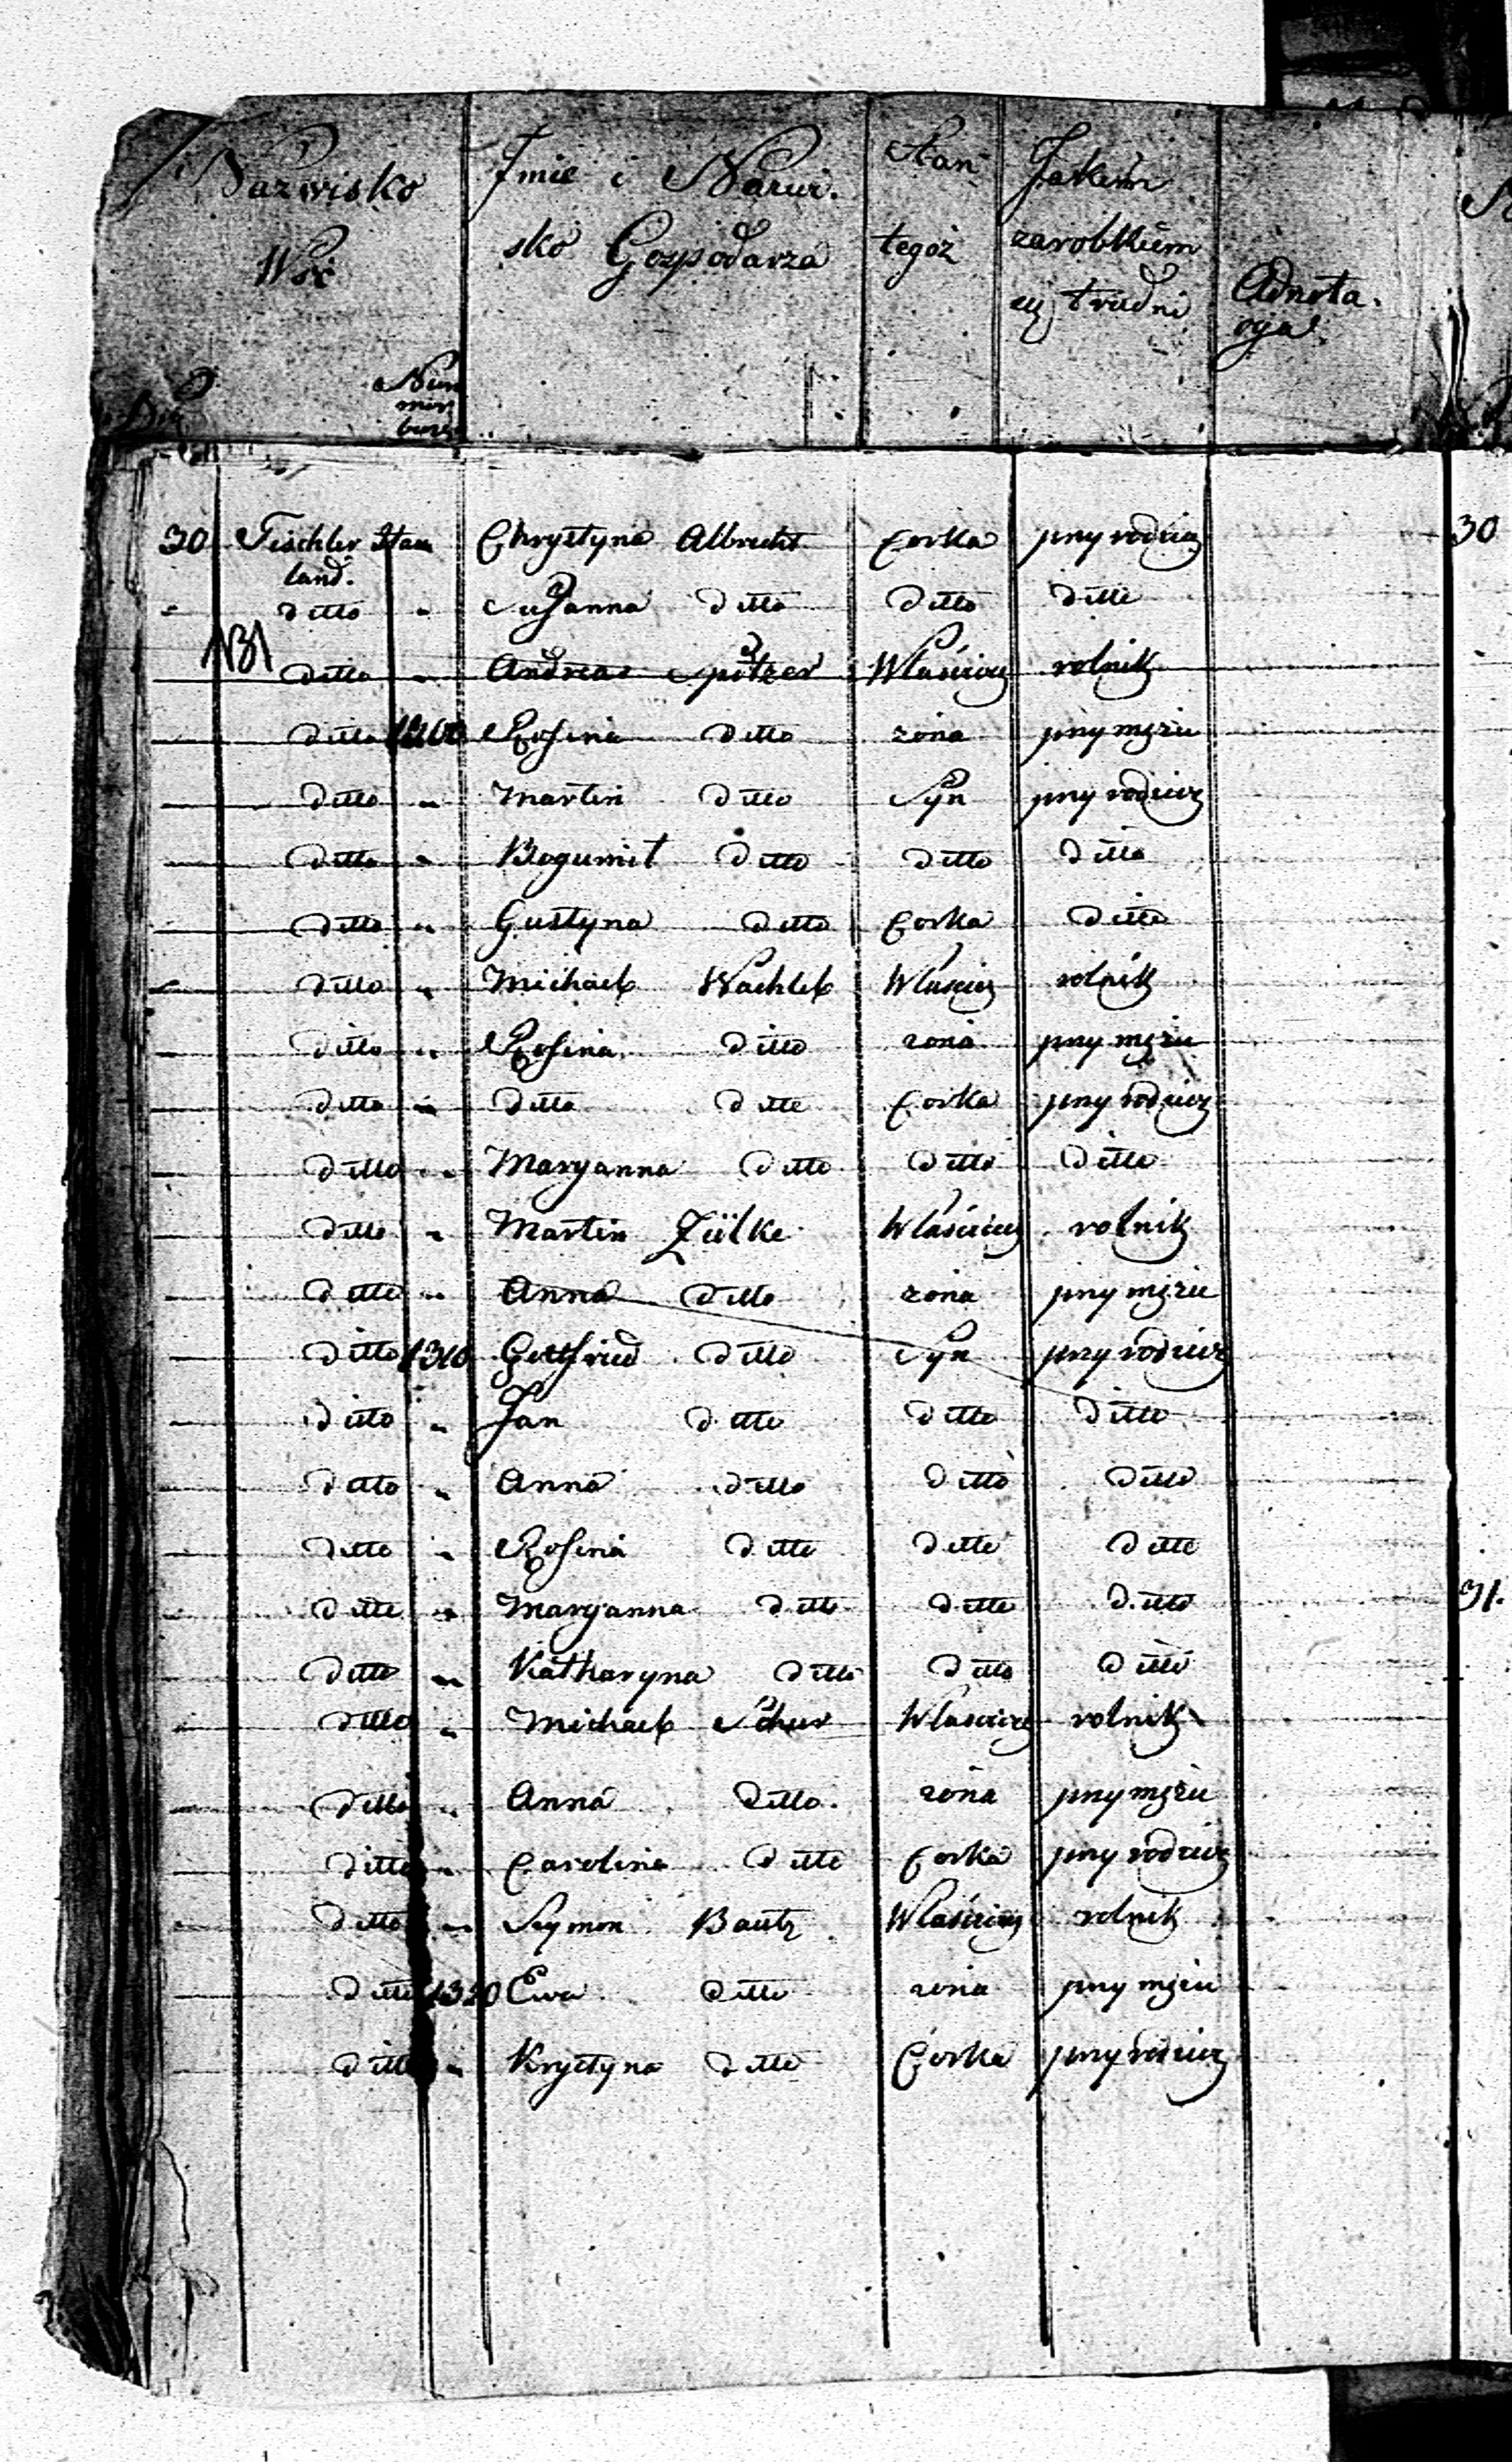 Nazwisko Wsi
Num
mer
bur
Imie i Nazwi.
sko Gospodarza
Stan
tegoż
Jakiem
zarobkiem
się trudni
Adnota.
cya
30 Tischler Hau Chrystyna Albrecht Corka przy rodzicz 30
land.
ditto " Susanna ditto ditto ditto
131 ditto " Andreas Spitzer Właściciel rolnik
ditto Rosina ditto żona przy mężu
ditto " Martin ditto Syn przy rodzicz
ditto " Bogumił ditto ditto ditto
ditto " Gustyna ditto Corka ditto
ditto " Michael Wachlel Właściciel rolnik
ditto " Rosina ditto żona przy mężu
ditto " ditto ditto Corka przy rodzicz
ditto " Maryanna ditto ditto ditto
ditto " Martin Zülke Właściciel rolnik
ditto " Anna ditto żona przy mężu
ditto 1310 Gottfried ditto Syn przy rodzicz
ditto " Jan ditto ditto ditto
ditto " Anna ditto ditto ditto
ditto " Rosina ditto ditto ditto
ditto " Maryanna ditto ditto ditto 31.
ditto " Katharyna ditto ditto ditto
ditto " Michael Schur Właściciel rolnik
ditto " Anna ditto żona przy mężu
ditto " Carolina ditto Corka przy rodzicz
ditto " Szymon Bautz Właściciel rolnik
ditto 1320 Ewa ditto żona przy mężu
ditto " Krystyna ditto Corka przy rodzicz